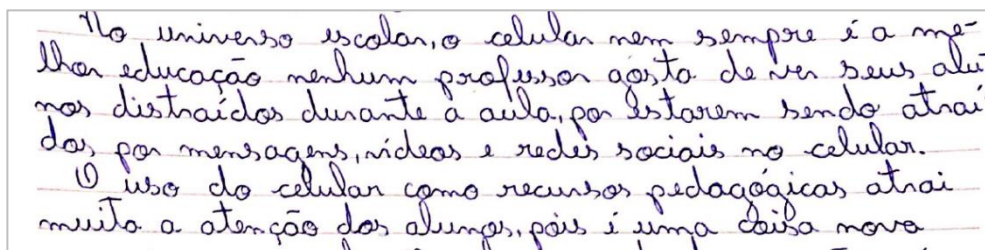 No universo escolar, o celular nem sempre é a me-
lhor educação nenhum professor gosta de ver seus alu-
nos distraídos durante a aula, por estarem sendo atraí
dos por mensagens, vídeos e redes sociais no celular.
O uso do celular como recursos pedagógicas atrai
muita a atenção dos alunos, pois é uma coisa nova